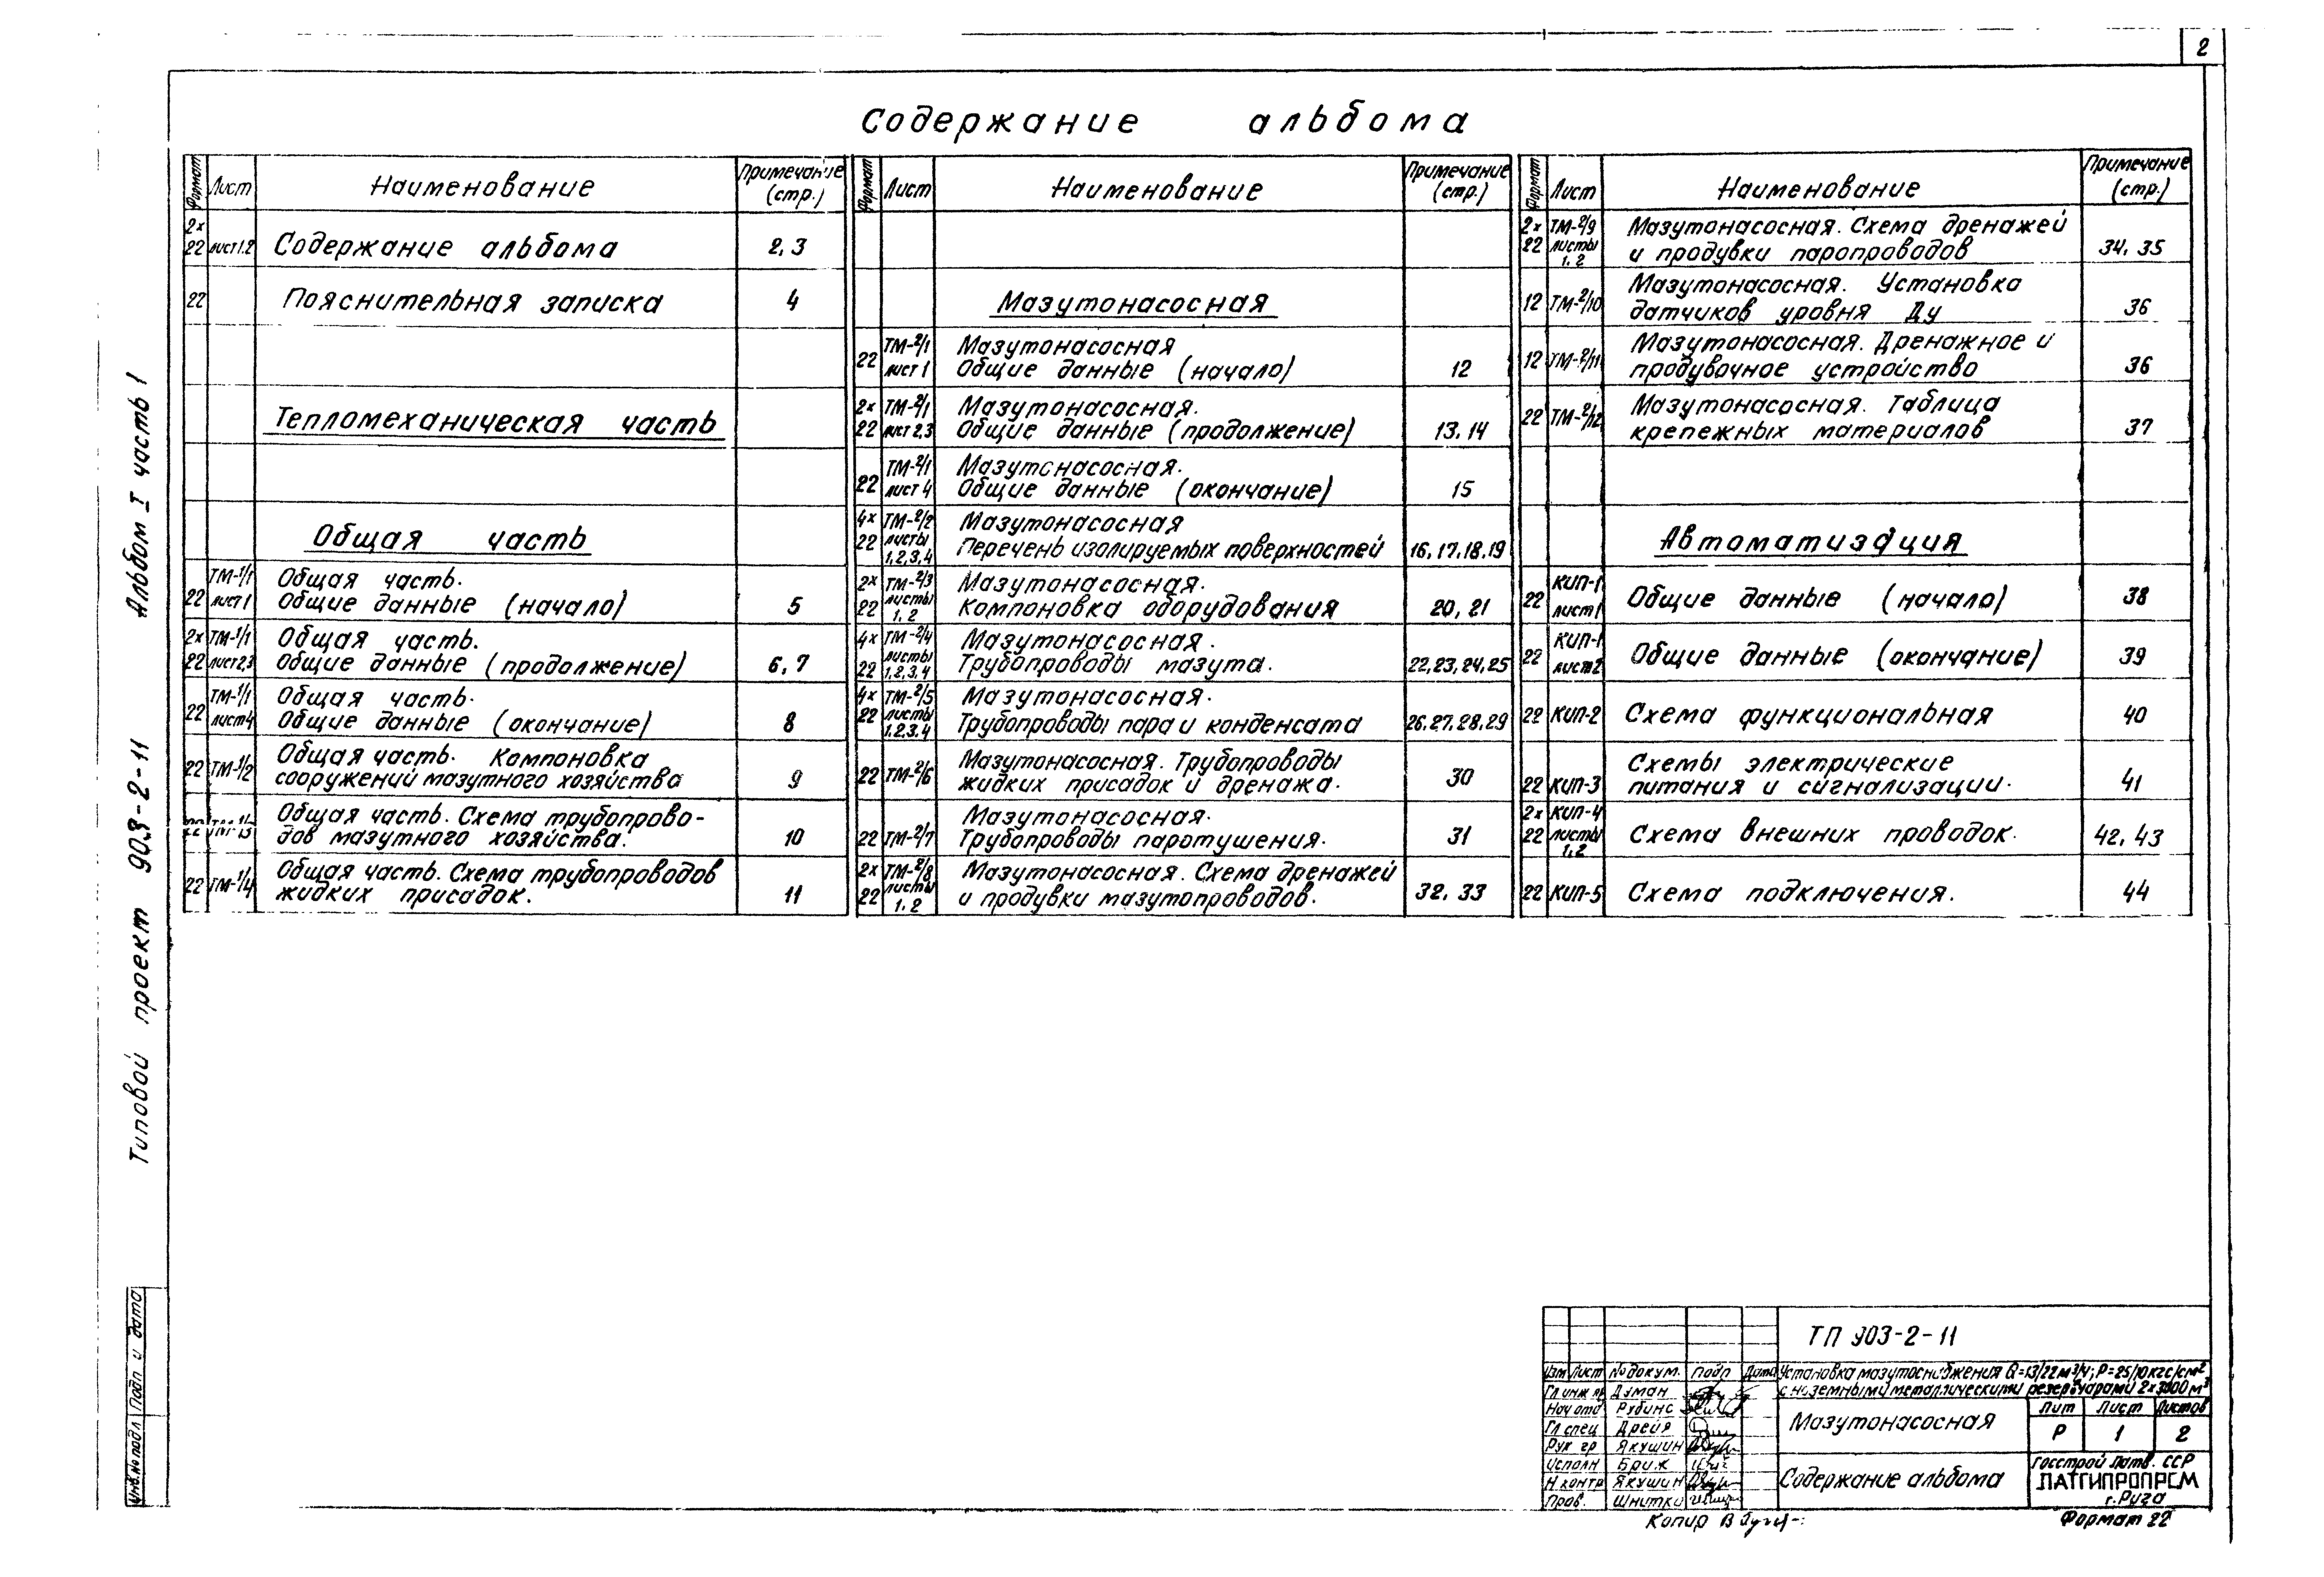 2
Содержание альбома
Формат Лист Наименование Примечание (стр.)
2х22 лист 1.2 Содержание альбома 2, 3
22 Пояснительная записка 4
Тепломеханическая часть
Общая часть
22 ТМ-1/1 лист 1 Общая часть.
Общие данные (начало) 5
2х22 ТМ-1/1 лист 2,3 Общая часть.
Общие данные (продолжение) 6, 7
22 ТМ-1/1 лист 4 Общая часть.
Общие данные (окончание) 8
22 ТМ-1/2 Общая часть. Компоновка
сооружений мазутного хозяйства 9
22 ТМ-1/3 Общая часть. Схема трубопрово-
дов мазутного хозяйства. 10
22 ТМ-1/4 Общая часть. Схема трубопроводов
жидких присадок. 11
Формат Лист Наименование Примечание (стр.)
Мазутонасосная
22 ТМ-2/1 лист 1 Мазутонасосная
Общие данные (начало) 12
2х22 ТМ-2/1 лист 2,3 Мазутонасосная.
Общие данные (продолжение) 13, 14
22 ТМ-2/1 лист 4 Мазутонасосная.
Общие данные (окончание) 15
4х22 ТМ-2/2 листы 1,2,3,4 Мазутонасосная
Перечень изолируемых поверхностей 16, 17, 18, 19
2х22 ТМ-2/3 листы 1, 2 Мазутонасосная.
Компоновка оборудования 20, 21
4х22 ТМ-2/4 листы 1,2,3,4 Мазутонасосная.
Трубопроводы мазута. 22, 23, 24, 25
4х22 ТМ-2/5 листы 1.2.3.4 Мазутонасосная.
Трубопроводы пара и конденсата 26, 27, 28, 29
22 ТМ-2/6 Мазутонасосная. Трубопроводы
жидких присадок и дренажа. 30
22 ТМ-2/7 Мазутонасосная.
Трубопроводы паротушения. 31
2х22 ТМ-2/8 листы 1. 2 Мазутонасосная. Схема дренажей
и продувки мазутопроводов. 32, 33
Формат Лист Наименование Примечание (стр.)
2х22 ТМ-2/9 листы 1. 2 Мазутонасосная. Схема дренажей
и продувки паропроводов 34, 35
12 ТМ-2/10 Мазутонасосная. Установка
датчиков уровня Ду 36
12 ТМ-2/11 Мазутонасосная. Дренажное и
продувочное устройство 36
22 ТМ-2/12 Мазутонасосная. Таблица
крепежных материалов 37
Автоматизация
22 КИП-1 лист 1 Общие данные (начало) 38
22 КИП-1 лист 2 Общие данные (окончание) 39
22 КИП-2 Схема функциональная 40
22 КИП-3 Схемы электрические
питания и сигнализации. 41
2х22 КИП-4 листы 1,2 Схема внешних проводок. 42, 43
22 КИП-5 Схема подключения. 44
Типовой проект 903-2-11 Альбом I часть 1
Инв.№подл Подп и дата
ТП 903-2-11
Изм Лист №докум. Подп Дата
Установка мазутоснабжения Q=13/22м³/ч; Р=25/10кгс/см²
с наземными металлическими резервуарами 2х3000м³
Гл инж пр Думан
Нач отд Рубинс
Гл спец Дрейя
Рук гр Якушин
Исполн Бриж
Н контр Якушин
Пров. Шнитки
Мазутонасосная
Лит Лист Листов
Р 1 2
Содержание альбома
Госстрой Латв. ССР
ЛАТГИПРОПРОМ
г.Рига
Копир В
Формат 22